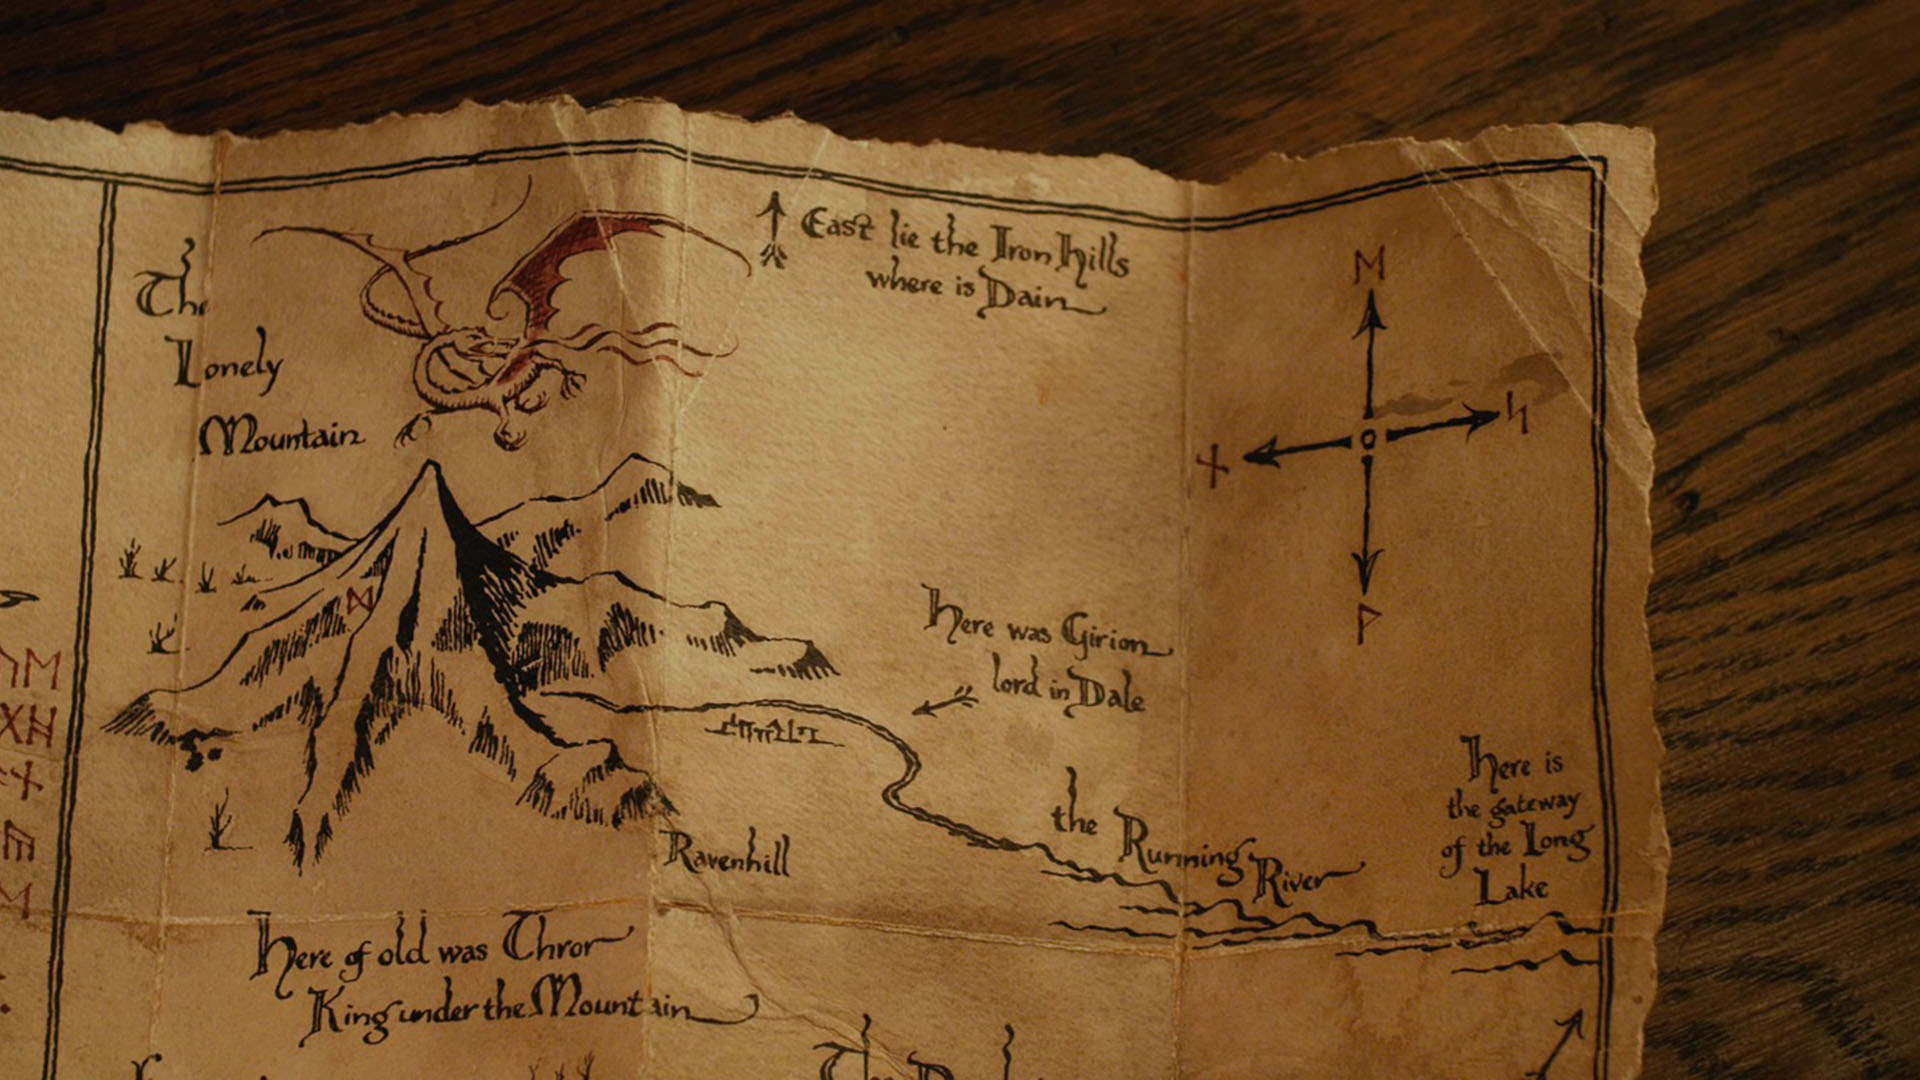 The
Lonely
Mountain
East lie the Iron Hills
where is Dain
ᛖ
ᛋ
ᚾ
ᚹ
ᛞ
Here was Girion
lord in Dale
the Running
River
Here is
the gateway
of the Long
Lake
Ravenhill
Here of old was Thror
King under the Mountain
The